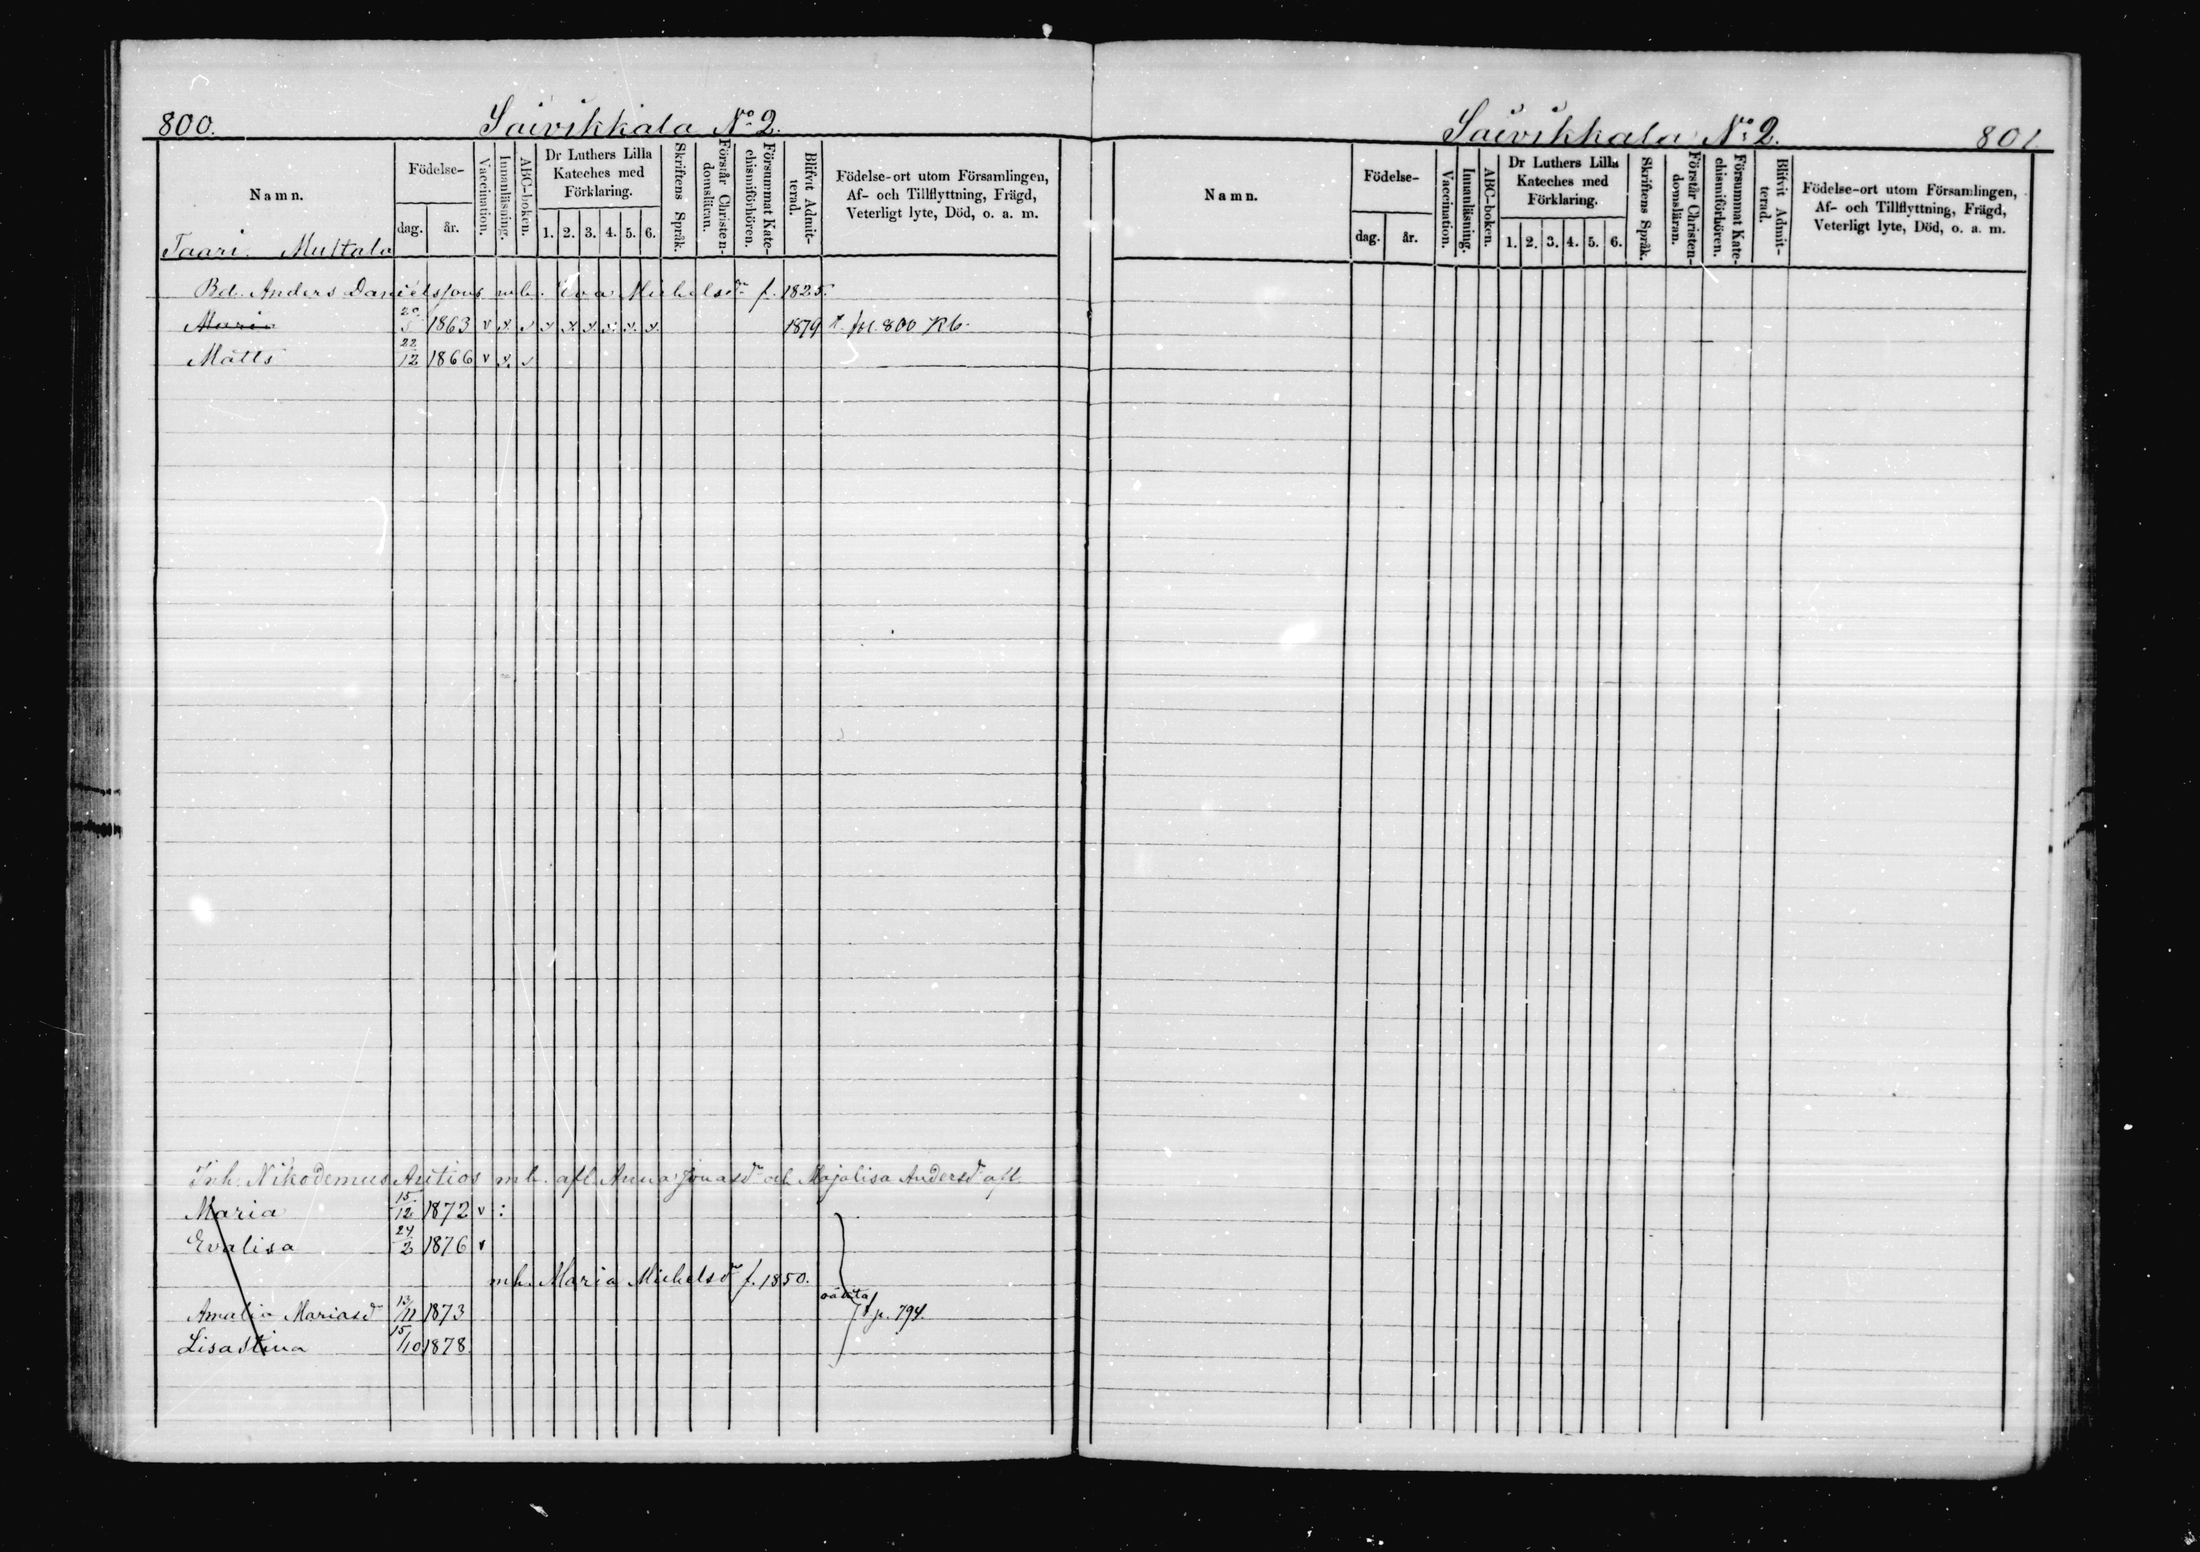 800. Saivikkala No 2.
Namn. Födelse- dag. år. Vaccination. Innanläsning. ABC-boken. Dr Luthers Lilla Kateches med Förklaring. 1. 2. 3. 4. 5. 6. Skriftens Språk. Förstår Christendomsläran. Försummat Katechismiförhören. Blifvit Admitterad. Födelse-ort utom Församlingen, Af- och Tillflyttning, Frägd, Veterligt lyte, Död, o. a. m.
Taari. Muttala
Bd. Anders Danielssons mh. Eva Michelsdr f. 1825.
Maria 20/5 1863 v x. v x x x x. x. x 1879 fol. 800 Kb.
Matts 22/12 1866 v x. v
Inh. Nikodemus Antios mh. afl. Anna Jonasdr och Majalisa Andersdr afl.
Maria 15/12 1872 v :
Evalisa 24/2 1876 v
mh. Maria Michelsdr f. 1850.
Amalia Mariasd 13/11 1873 p. 794.
Lisastina 15/10 1878.
Saivikkala No 2. 801
Namn. Födelse- dag. år. Vaccination. Innanläsning. ABC-boken. Dr Luthers Lilla Kateches med Förklaring. 1. 2. 3. 4. 5. 6. Skriftens Språk. Förstår Christendomsläran. Försummat Katechismiförhören. Blifvit Admitterad. Födelse-ort utom Församlingen, Af- och Tillflyttning, Frägd, Veterligt lyte, Död, o. a. m.